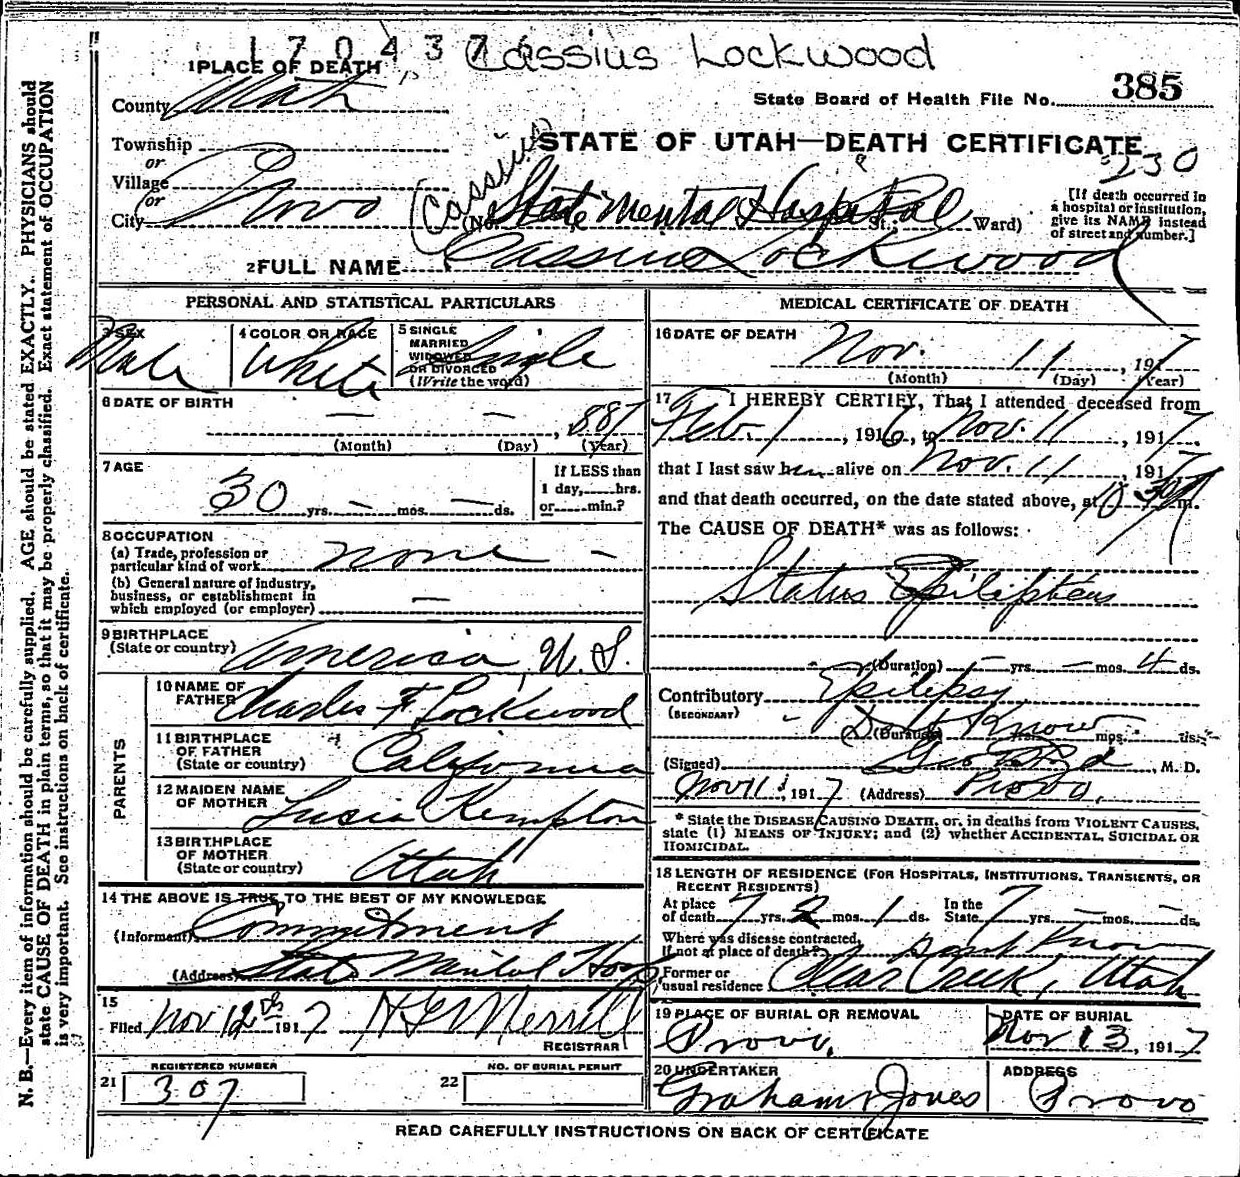 170437
Cassius Lockwood
1 PLACE OF DEATH
385
County Utah
State Board of Health File No.
Township
STATE OF UTAH—DEATH CERTIFICATE
or
230
Village
or
City Provo
(Cassius
(No. State Mental Hospital St.; Ward)
[If death occurred in
a hospital or institution,
give its NAME instead
of street and number.]
2 FULL NAME Cassius Lockwood
PERSONAL AND STATISTICAL PARTICULARS
3 SEX
Male
4 COLOR OR RACE
White
5 SINGLE
MARRIED
WIDOWED
OR DIVORCED
(Write the word)
Single
6 DATE OF BIRTH
— — , 887
(Month) (Day) (Year)
7 AGE
30 yrs. — mos. — ds.
If LESS than
1 day, hrs.
or min.?
8 OCCUPATION
(a) Trade, profession or
particular kind of work none —
(b) General nature of industry,
business, or establishment in
which employed (or employer) —
9 BIRTHPLACE
(State or country) America, U.S.
PARENTS
10 NAME OF
FATHER Charles F Lockwood
11 BIRTHPLACE
OF FATHER
(State or country) California
12 MAIDEN NAME
OF MOTHER Kempton
13 BIRTHPLACE
OF MOTHER
(State or country) Utah
14 THE ABOVE IS TRUE TO THE BEST OF MY KNOWLEDGE
(Informant) Commitment
(Address) State Mental Hosp
15
Filed Nov 12th 1917 Merrill
REGISTRAR
REGISTERED NUMBER
21 307
NO. OF BURIAL PERMIT
22
MEDICAL CERTIFICATE OF DEATH
16 DATE OF DEATH
Nov. 11, 1917
(Month) (Day) (Year)
17 I HEREBY CERTIFY, That I attended deceased from
Feb. 1, 1916, to Nov. 11, 1917.
that I last saw him alive on Nov. 11, 1917
and that death occurred, on the date stated above, at 10 m.
The CAUSE OF DEATH* was as follows:
Status Epilipticus
(Duration) — yrs. — mos. 4 ds.
Contributory Epilepsy
(SECONDARY)
(Duration) Dont Know mos. ds.
(Signed) M. D.
Nov 11, 1917 (Address) Provo.
* State the DISEASE CAUSING DEATH, or, in deaths from VIOLENT CAUSES,
state (1) MEANS OF INJURY; and (2) whether ACCIDENTAL, SUICIDAL OR
HOMICIDAL.
18 LENGTH OF RESIDENCE (FOR HOSPITALS, INSTITUTIONS, TRANSIENTS, OR
RECENT RESIDENTS)
At place
of death 7 yrs. 2 mos. 1 ds.
In the
State 7 yrs. — mos. — ds.
Where was disease contracted,
if not at place of death? Dont Know
Former or
usual residence Clear Creek, Utah
19 PLACE OF BURIAL OR REMOVAL
Provo,
DATE OF BURIAL
Nov 13, 1917
20 UNDERTAKER
Graham & Jones
ADDRESS
Provo
READ CAREFULLY INSTRUCTIONS ON BACK OF CERTIFICATE
N. B.—Every item of information should be carefully supplied. AGE should be stated EXACTLY. PHYSICIANS should
state CAUSE OF DEATH in plain terms, so that it may be properly classified. Exact statement of OCCUPATION
is very important. See instructions on back of certificate.